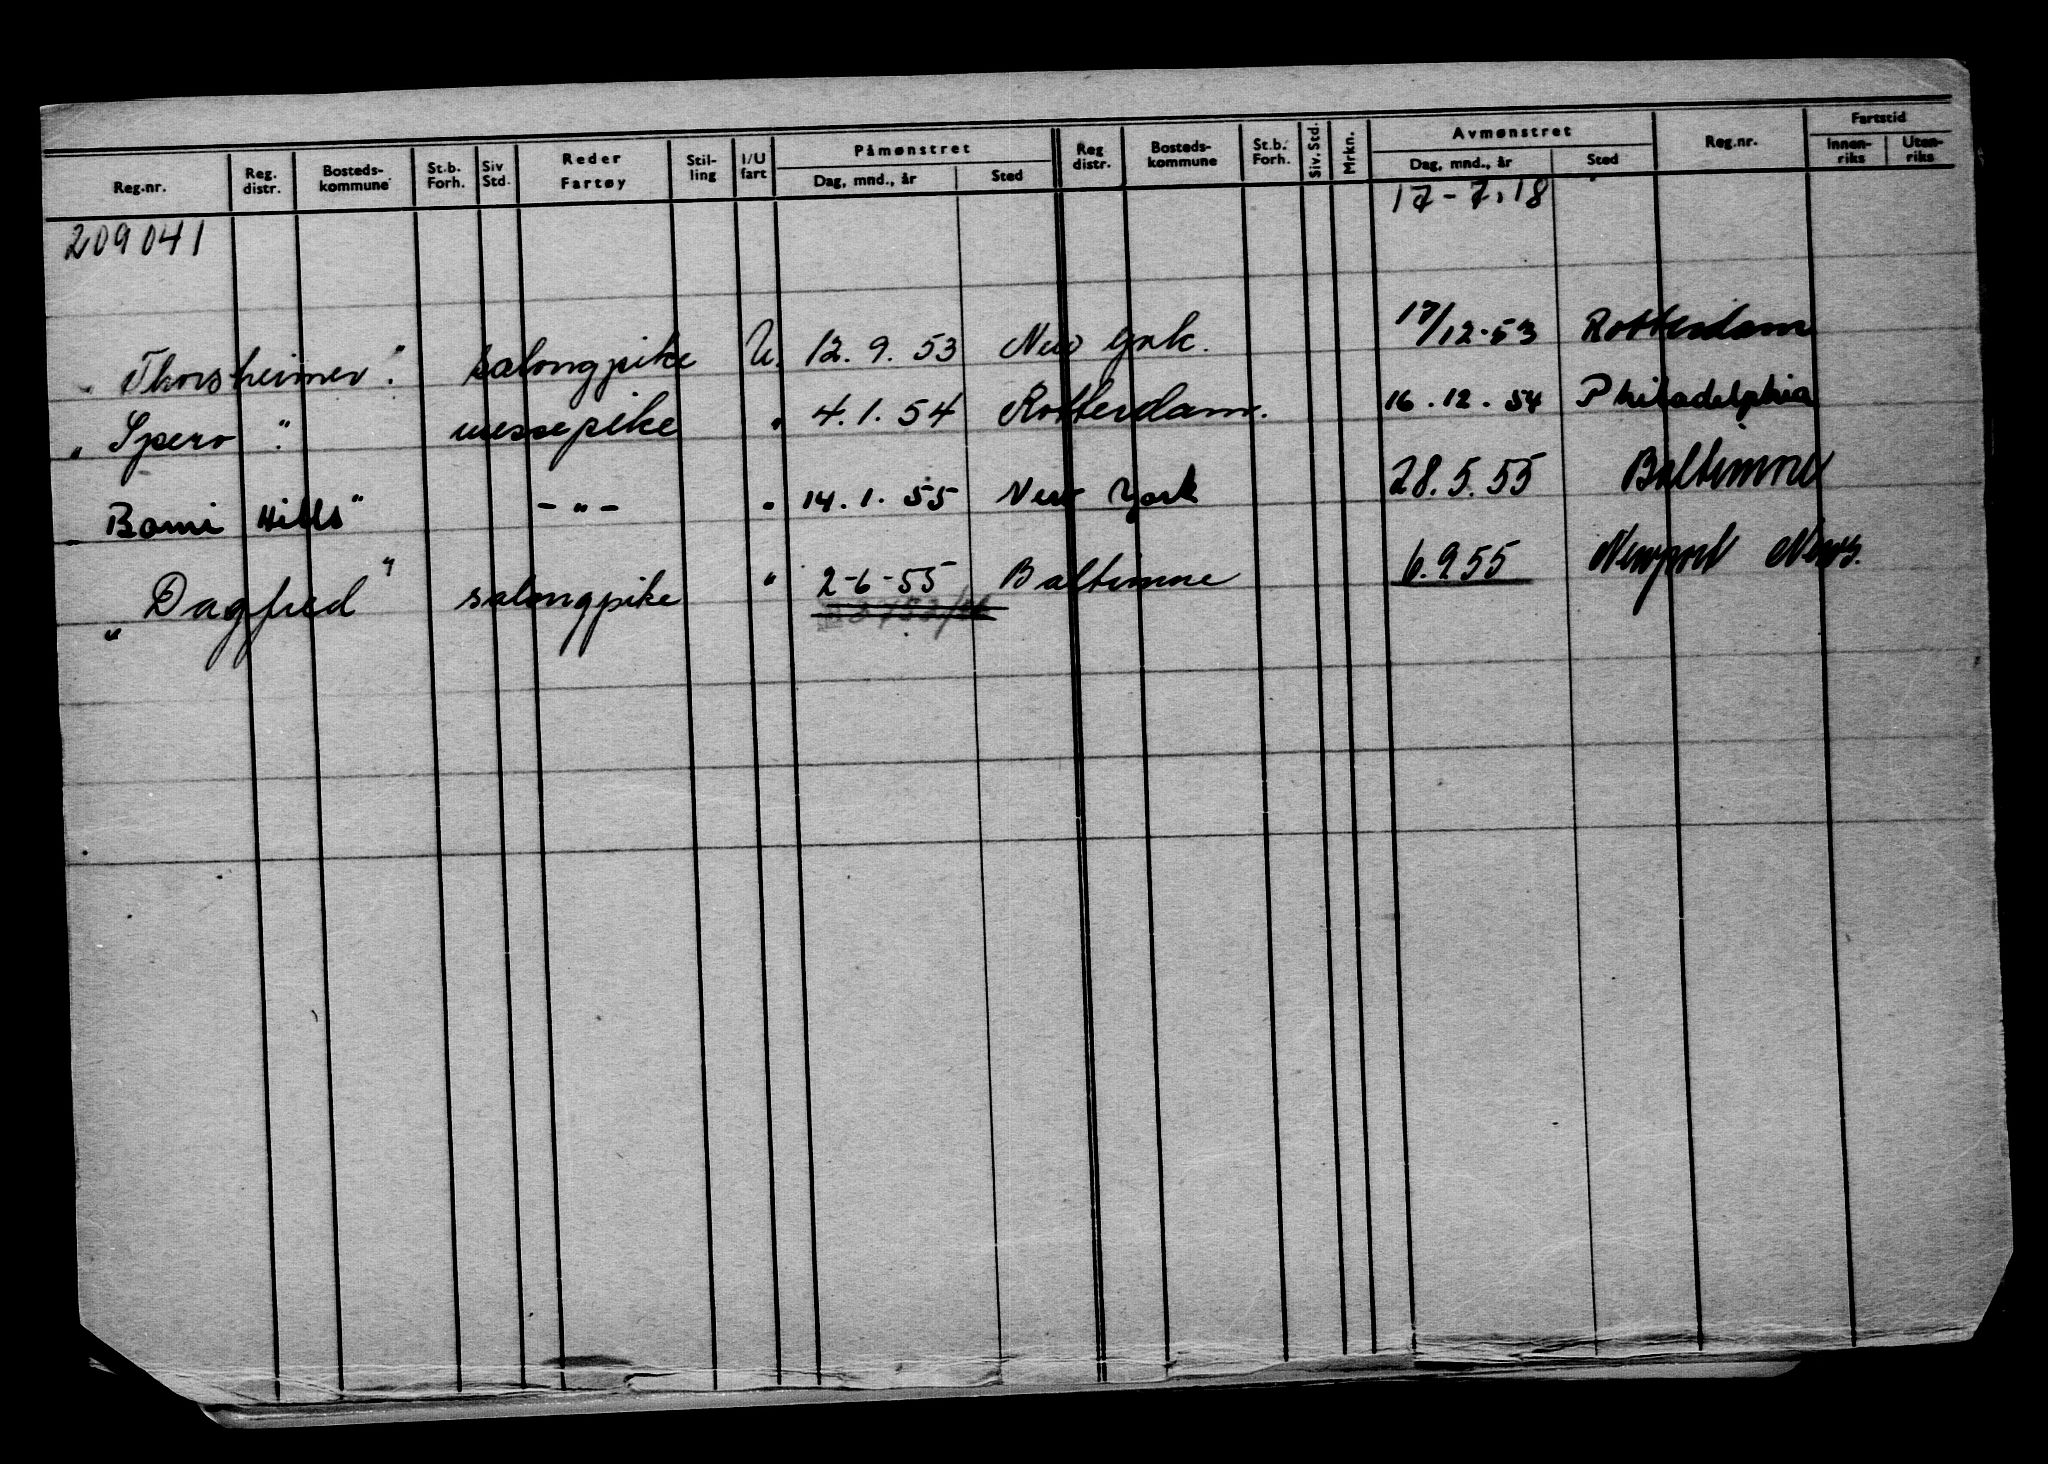 Reg.nr. Reg. distr. Bosteds-kommune St.b. Forh. Siv Std. Reder Fartøy Stil-ling I/U fart Påmønstret Dag, mnd., år Sted Reg distr. Bosteds-kommune St.b. Forh. Siv. Std. Mrkn. Avmønstret Dag, mnd., år Sted Reg.nr. Fartstid Innen-riks Uten-riks
209041 17-7.18
"Thorsheimer". salongpike U. 12.9.53 New York. 17/12-53 Rotterdam
"Spero". messepike " 4.1.54 Rotterdam. 16.12.54 Philadelphia
"Bomi Hills" -"- " 14.1.55 New York 28.5.55 Baltimore
"Dagfred" salongpike " 2-6-55 Baltimore 6.9.55 Newport News.